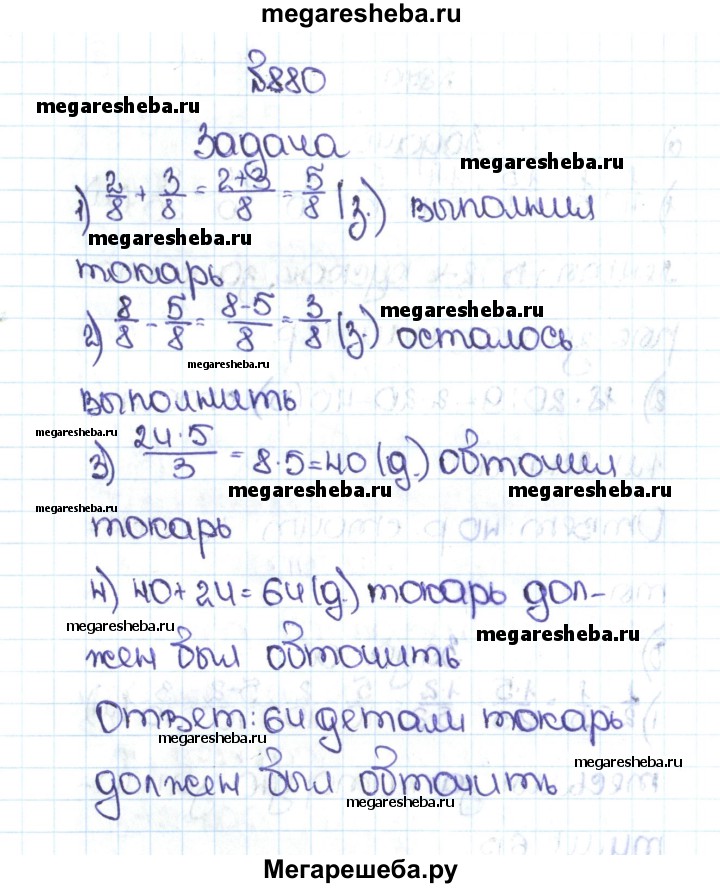 megaresheba.ru
№880
megaresheba.ru
Задача
megaresheba.ru
1) 2/8 + 3/8 = 2+3/8 = 5/8 (з.) выполнил
megaresheba.ru
токарь
megaresheba.ru
2) 8/8 - 5/8 = 8-5/8 = 3/8 (з.) осталось
megaresheba.ru
выполнить
megaresheba.ru
3) 24·5/3 = 8·5=40 (д.) обточил
megaresheba.ru megaresheba.ru
megaresheba.ru
токарь
4) 40+24=64(д.) токарь дол-
megaresheba.ru
megaresheba.ru
жен был обточить
Ответ: 64 детали токарь
megaresheba.ru
должен был обточить
megaresheba.ru
megaresheba.ru
Мегарешеба.ру